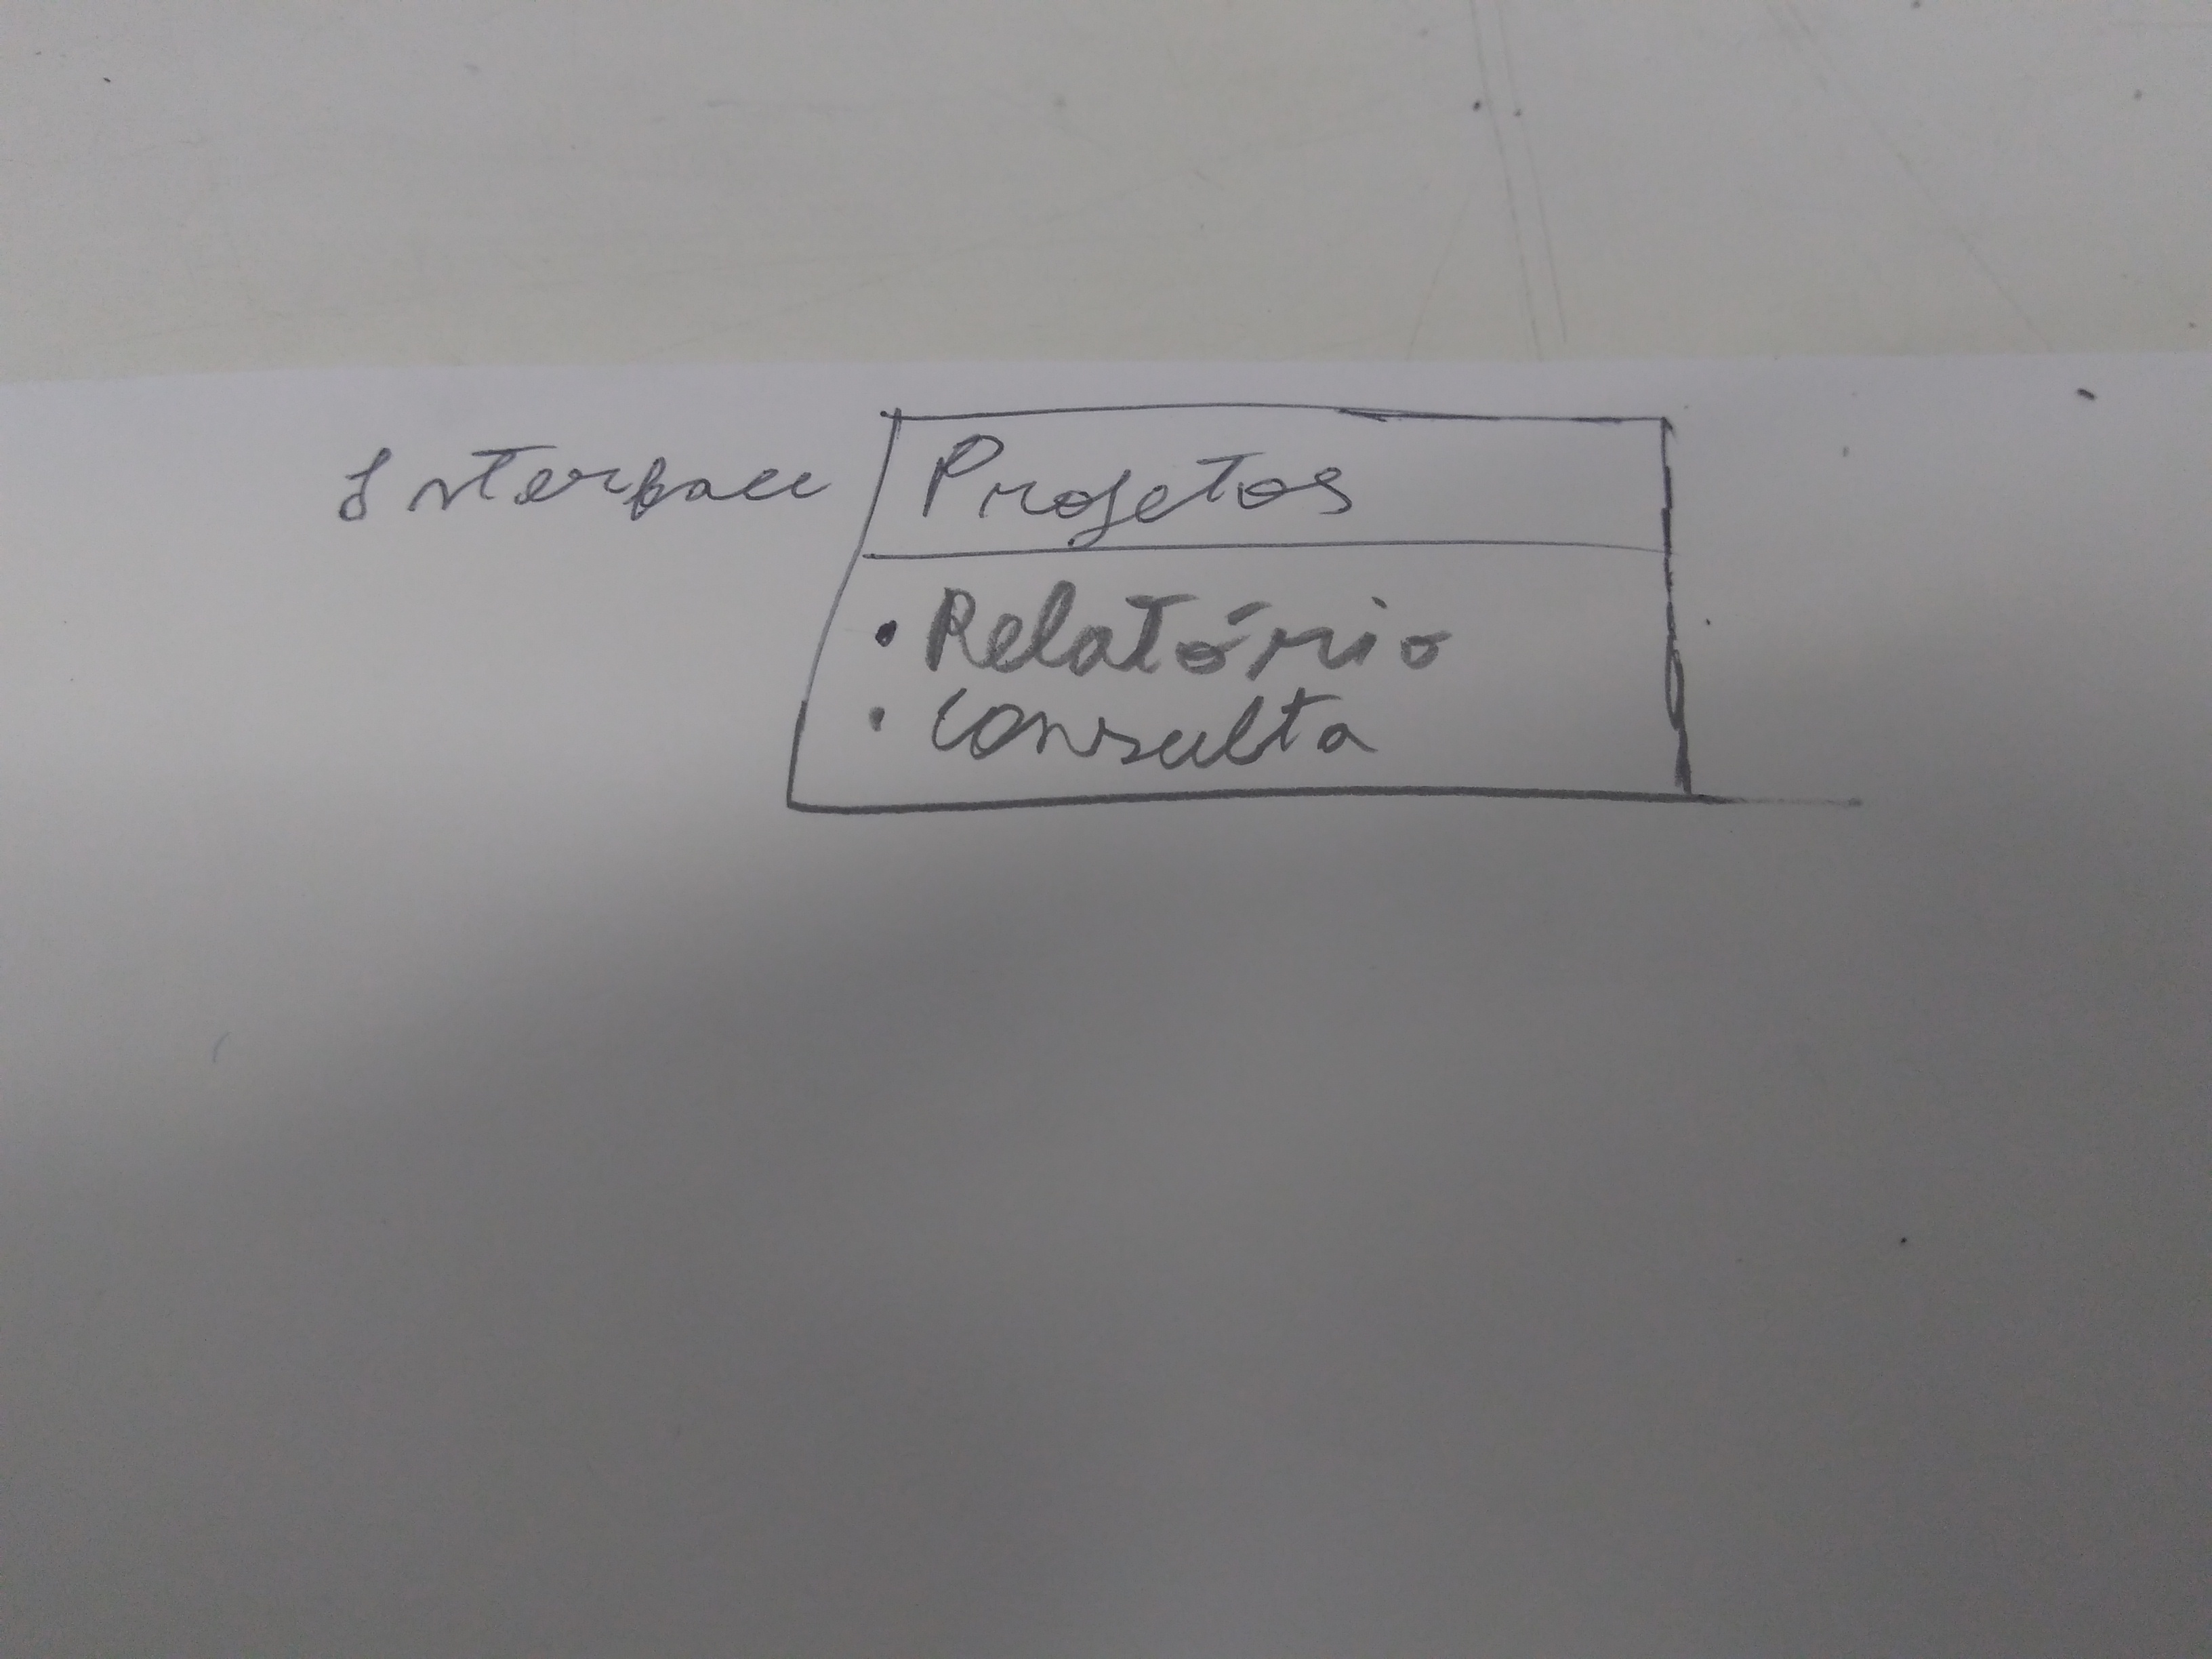 Interface Projetos
• Relatório
• Consulta